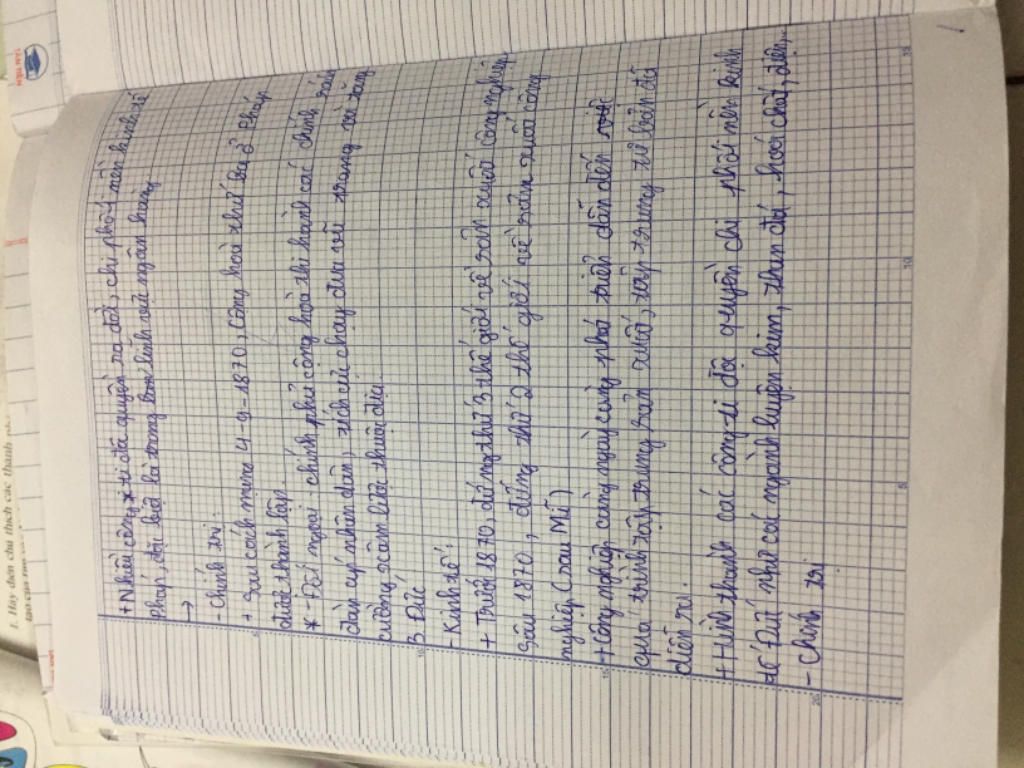 1. Hãy điền chú thích các thành
TIẾN
+ Nhiều công ti độc quyền ra đời, chi phối nền kinh tế
Pháp, đặc biệt là trong lĩnh vực ngân hàng
→
- Chính trị:
+ Sau cách mạng 4-9-1870, Cộng hoà thứ ba ở Pháp
được thành lập.
* - Đối ngoại: chính phủ cộng hoà thi hành các chính sách
đàn áp nhân dân, tích cực chạy đua vũ trang và tăng
cường xâm lược thuộc địa.
3 Đức
- Kinh tế:
+ Trước 1870, đứng thứ 3 thế giới về sản xuất công nghiệp
Sau 1870, đứng thứ 2 thế giới về sản xuất công
nghiệp (sau Mĩ)
+ Công nghiệp càng ngày càng phát triển dẫn đến
quá trình tập trung sản xuất, tập trung tư bản đã
diễn ra.
+ Hình thành các công ti độc quyền chi phối nền kinh
tế Đức như các ngành luyện kim, than đá, hoá chất, điện,...
- Chính trị
5
10
15
20
5
10
15